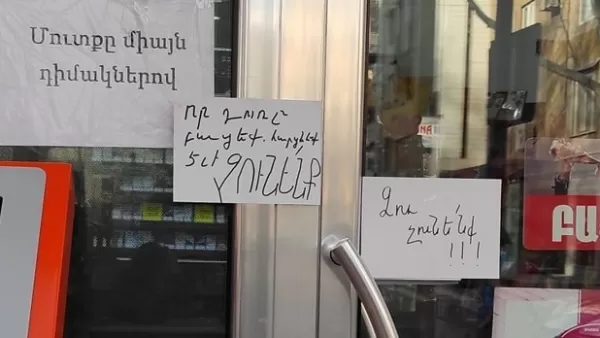 Մուտքը միայն
դիմակներով
Որ դուռը
բացեք. հարցնեք
էլի ՉՈՒՆԵՆՔ
Ձու
չունե՛նք
!!!
ԲԱ